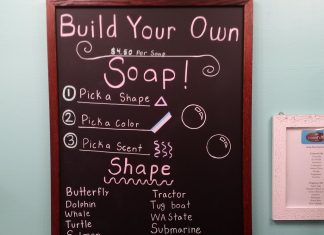 Build Your Own
$4.50 Per Soap
Soap!
1 Pick a Shape
2 Pick a Color
3 Pick a Scent
Shape
Butterfly
Dolphin
Whale
Turtle
Salmon
Tractor
Tug boat
WA State
Submarine